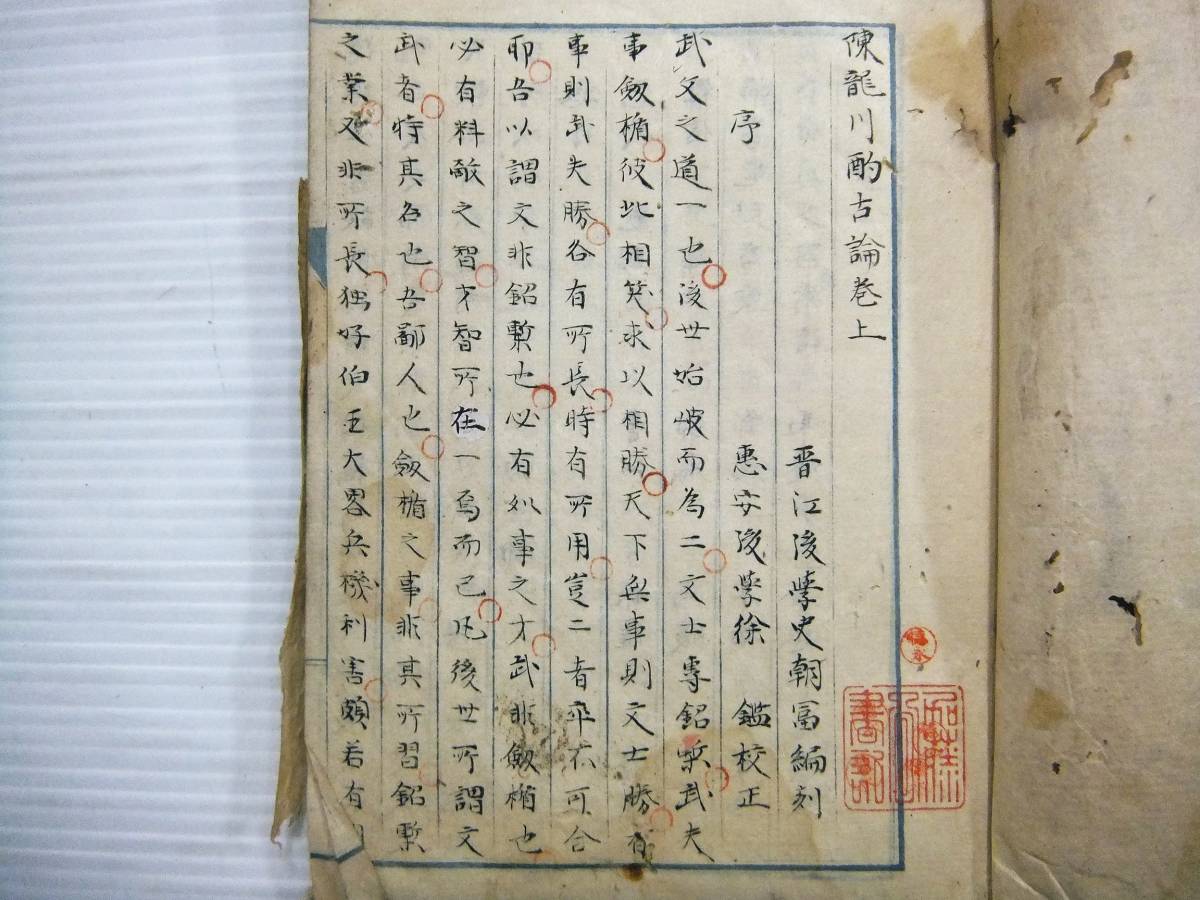 陳龍川酌古論巻上
晋江後學史朝冨編刻
序　惠安後學徐　鑑校正
武文之道一也後世始岐而為二文士專鉛槧武夫
事劔楯彼此相笑求以相勝天下無事則文士勝有
事則武夫勝各有所長時有所用豈二者卒不可合
耶吾以謂文非鉛槧也必有処事之才武非劔楯也
必有料敵之智才智所在一焉而已凢後世所謂文
武者特其名也吾鄙人也劔楯之事非其所習鉛槧
之業又非所長独好伯王大畧兵機利害頗若有